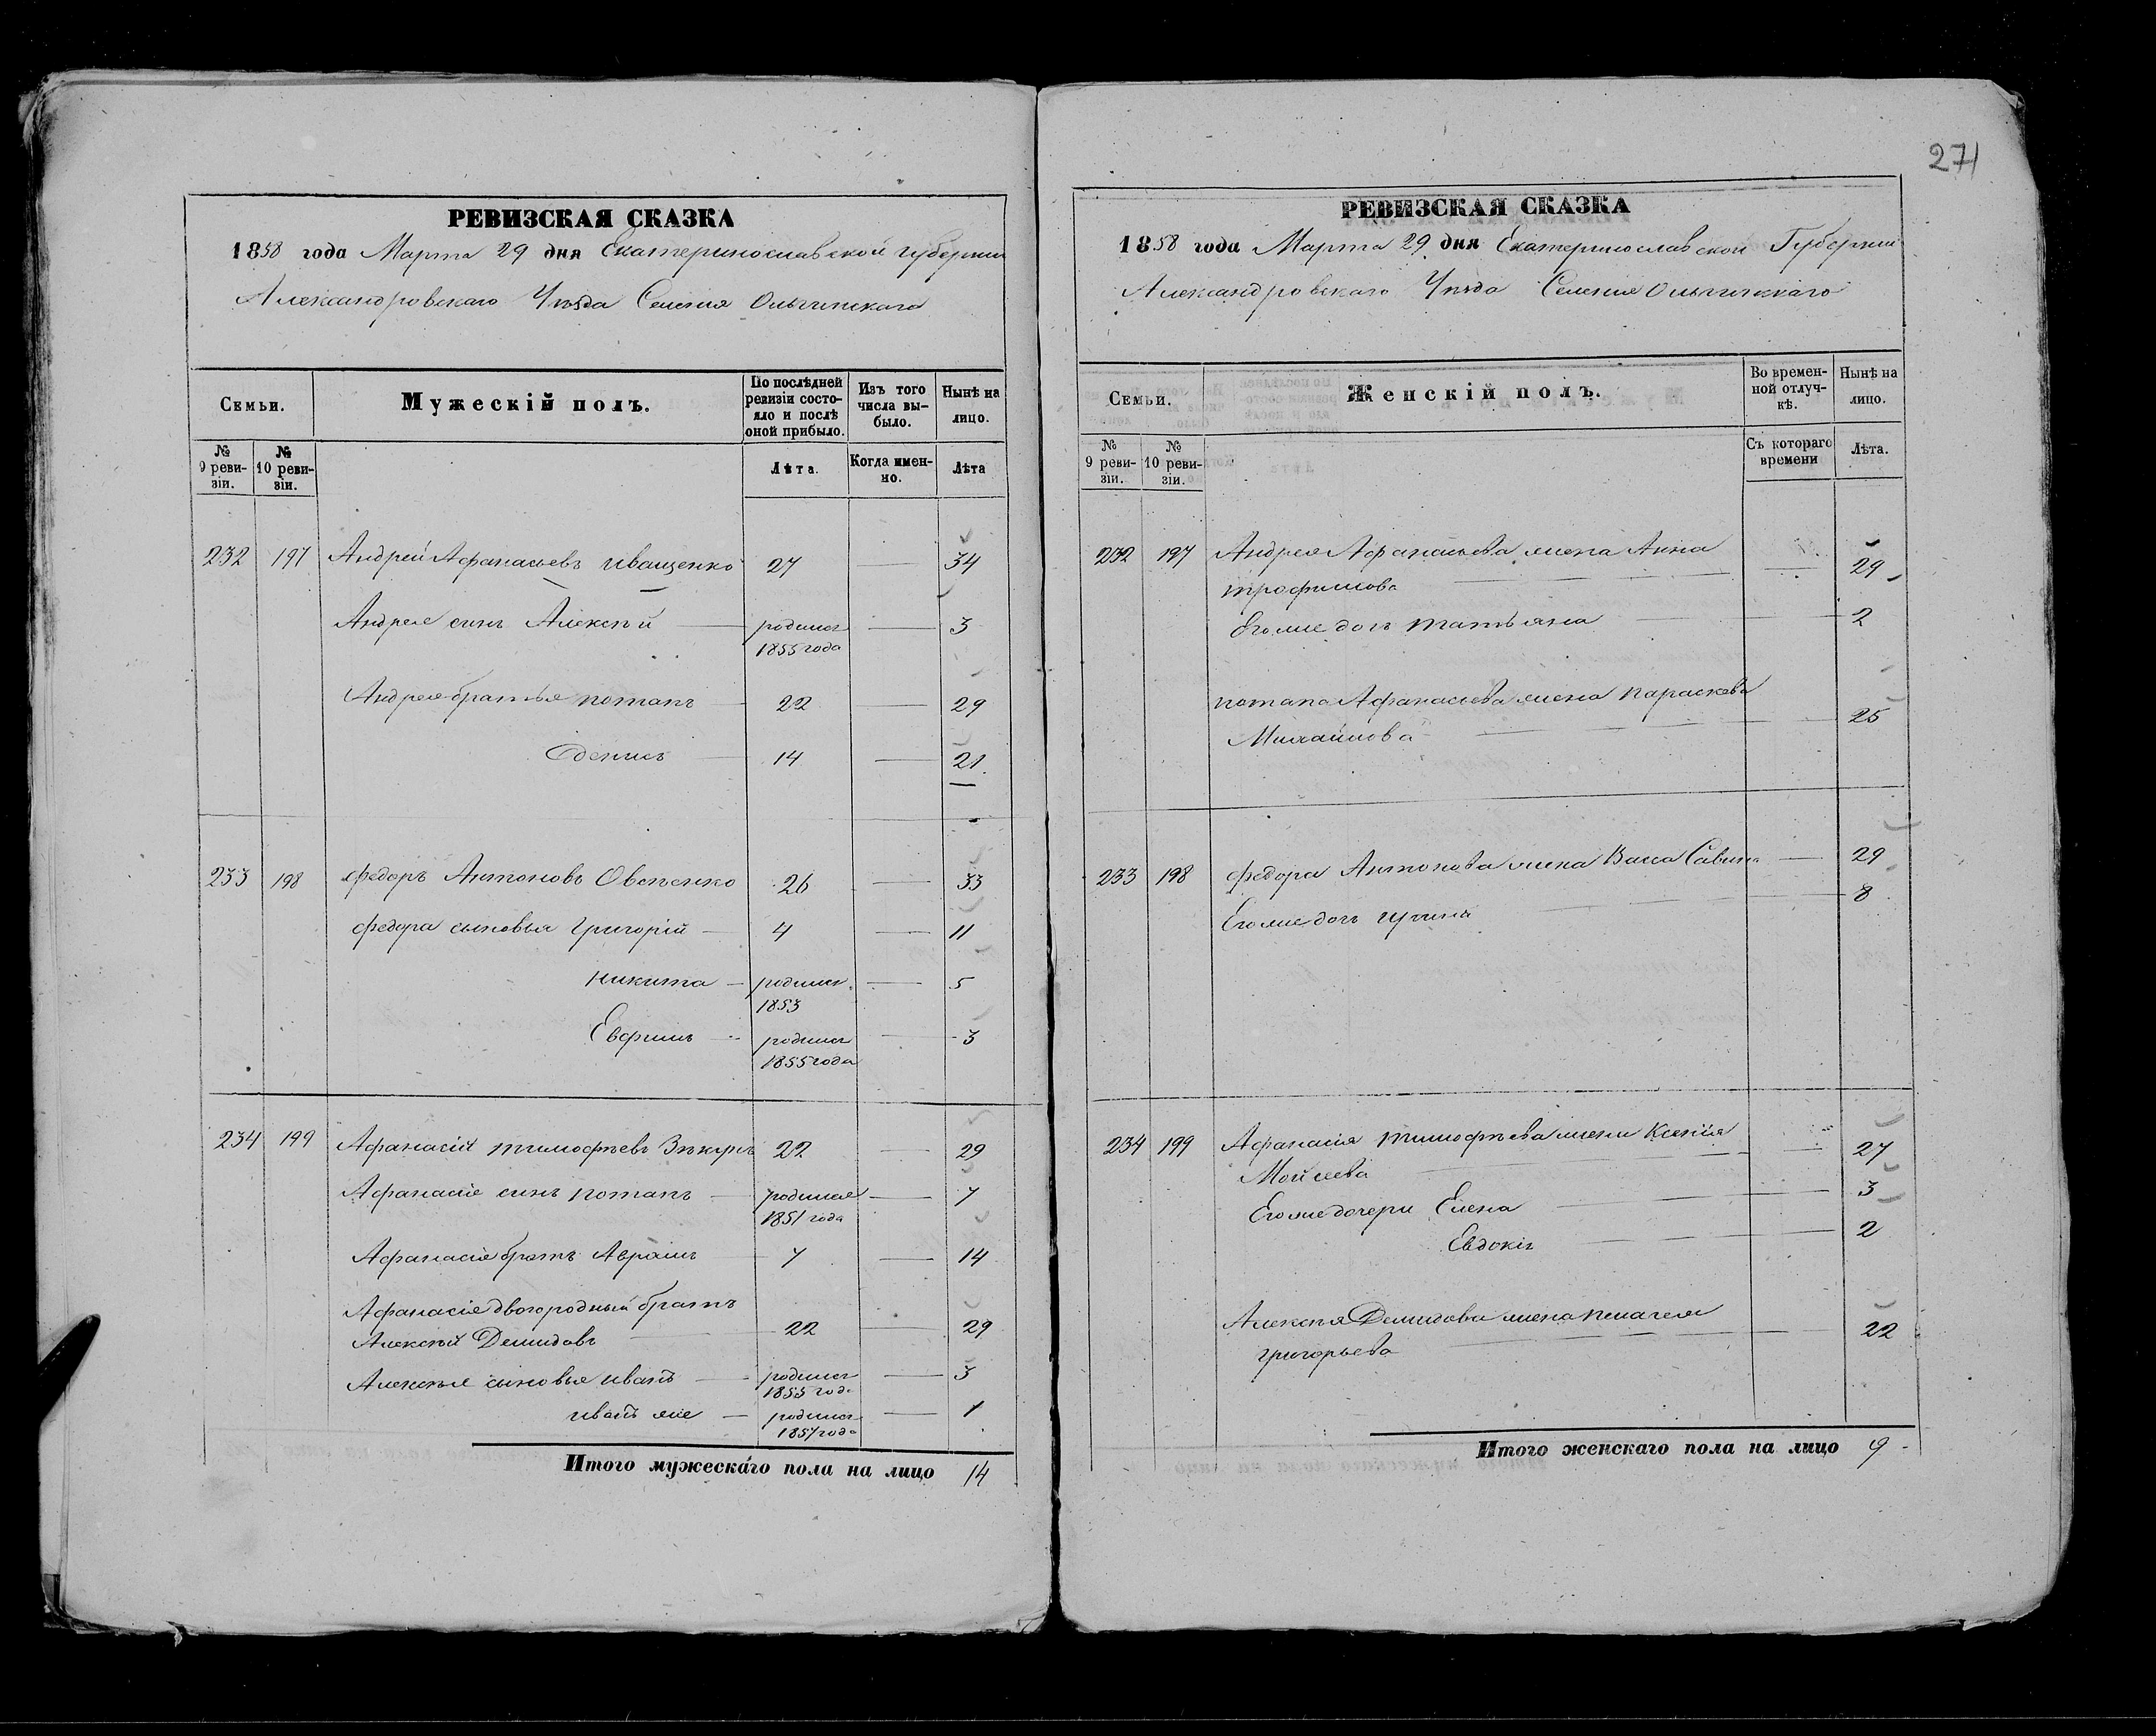 271
РЕВИЗСКАЯ СКАЗКА
1858 года Марта 29 дня Екатеринославской губернии
Александровскаго Уѣзда Селения Ольгинскаго
Семьи.
Мужескій полъ.
По послѣдней ревизіи состояло и послѣ оной прибыло.
Изъ того числа выбыло.
Нынѣ на лицо.
№ 9 ревизіи.
№ 10 ревизіи.
Лѣта.
Когда именно.
Лѣта
232 197 Андрей Афанасьевъ Иващенко 27 — 34
Андрея сынъ Алексѣй — родился — 3
1855 года
Андрея братья Потапъ — 22 — 29
Денисъ — 14 — 21
233 198 Федоръ Антоновъ 26 — 33
Федора сыновья Григорій — 4 — 11
Никита — родился — 5
1853
Евфимъ — родился — 3
1855 года
234 199 Афанасій Тимофѣевъ 22 — 29
Афанасіе сынъ Потапъ — родился — 7
1851 года
Афанасіе братъ Аврамъ 7 — 14
Афанасіе двогородный братъ
Алексѣй Демидовъ — 22 — 29
Алексѣя сыновья Иванъ — родился — 3
1855 года
Иванъ же — родился — 1
1857 года
Итого мужескаго пола на лицо 14
РЕВИЗСКАЯ СКАЗКА
1858 года Марта 29 дня Екатеринославской Губернии
Александровскаго Уѣзда Селения Ольгинскаго
Семьи.
Женскій полъ.
Во временной отлучкѣ.
Нынѣ на лицо.
№ 9 ревизіи.
№ 10 ревизіи.
Съ котораго времени
Лѣта.
232 197 Андрея Афанасьева жена Анна
Трофимова — 29
Его же дочь Татьяна — 2
Потапа Афанасьева жена Параскева
Михайлова — 25
233 198 Федора Антонова жена Васса Савина — 29
Его же дочь — 8
234 199 Афанасія Тимофѣева жена Ксения
Мойсеева — 27
Его же дочери Елена — 3
Евдокія — 2
Алексѣя Демидова жена Пелагея
Григорьева — 22
Итого женскаго пола на лицо 9